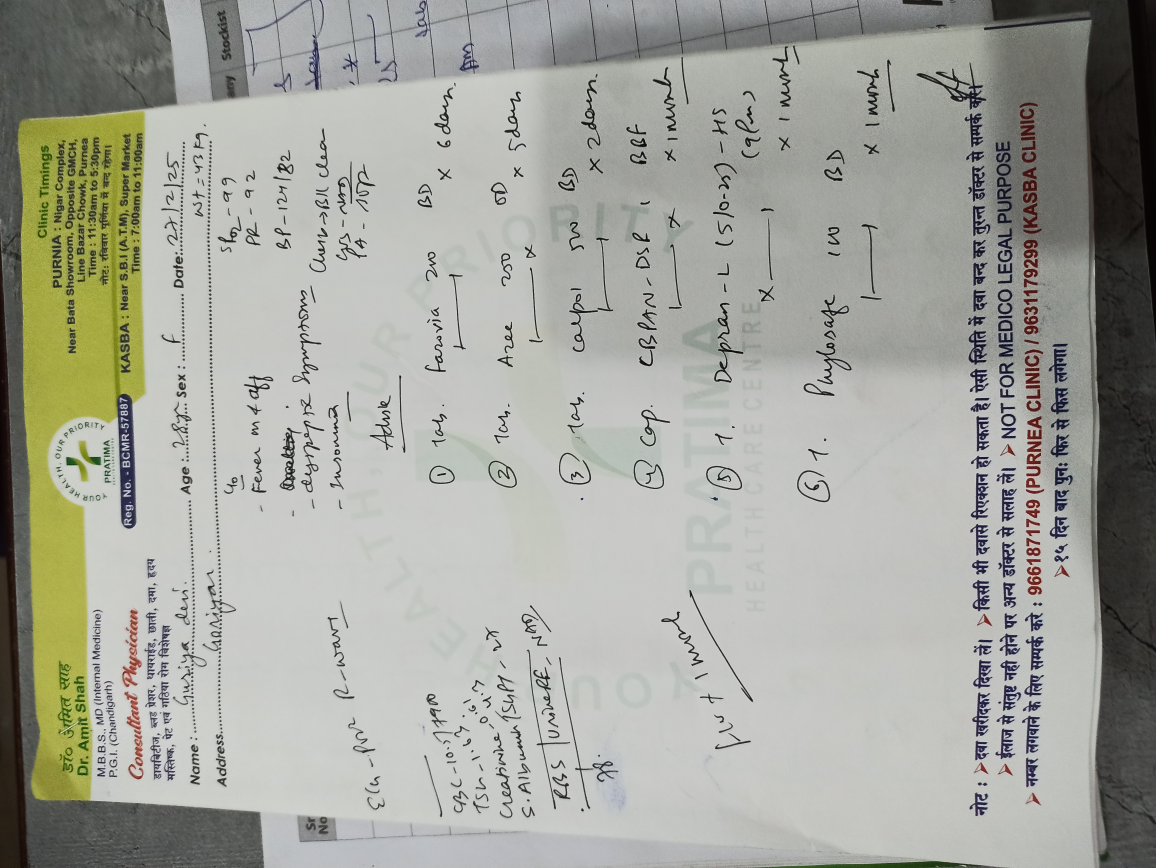 डॉ० अमित साह
Dr. Amit Shah
M.B.B.S., MD (Internal Medicine)
P.G.I. (Chandigarh)
Consultant Physician
डायबिटीज, ब्लड प्रेशर, थायराईड, छाती, दमा, हृदय
मस्तिष्क, पेट एवं गठिया रोग विशेषज्ञ
YOUR HEALTH, OUR PRIORITY
PRATIMA
Reg. No. - BCMR-57887
Clinic Timings
PURNIA : Nigar Complex,
Near Bata Showroom, Opposite GMCH,
Line Bazar Chowk, Purnea
Time : 11:30am to 5:30pm
नोट: रविवार पूर्णिया में बन्द रहेगा।
KASBA : Near S.B.I (A.T.M), Super Market
Time : 7:00am to 11:00am
Name : Guriya devi. Age : 28yr Sex : F Date: 27/2/25
Address
Wt = 43 kg.
SPO2 - 99
PR - 92
BP - 121/82
Chest → B/L clear
c/o
- Fever on & off
- dyspeptic symptoms
- Insomnia
Advise
① Tab. Farovia 200 BD x 6 days
② Tab. Azee 250 OD x 5 days
③ Tab. Calpol 500 BD x 2 days.
④ Cap. CBPAN-DSR 1 BBF x 1 month
⑤ T. Depran-L (5/0.25) - HS
(9 Pm)
x 1 month
⑥ T. 100 BD x 1 month
CBC - 10.5/7900
TSH - 1.63
Creatinine
S. Albumin / SGPT - 27
RBS / Urine RE - NAD
98
F/u + 1 month
YOUR HEALTH, OUR PRIORITY
PRATIMA
HEALTHCARE CENTRE
नोट : ➤ दवा खरीदकर दिखा लें। ➤ किसी भी दवासे रिएक्शन हो सकता है। ऐसी स्थिति में दवा बन्द कर तुरन्त डॉक्टर से सम्पर्क करें।
➤ ईलाज से संतुष्ट नही होने पर अन्य डॉक्टर से सलाह लें। ➤ NOT FOR MEDICO LEGAL PURPOSE
➤ नम्बर लगवाने के लिए सम्पर्क करे : 9661871749 (PURNEA CLINIC) / 9631179299 (KASBA CLINIC)
➤ १५ दिन बाद पुनः फिर से फिस लगेगा।
Stockist